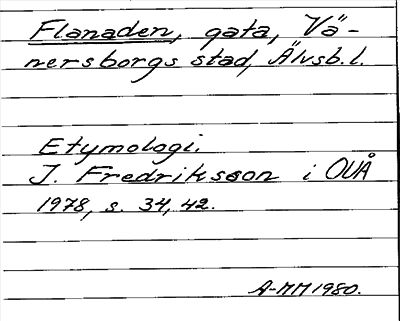 Flanaden, gata, Vä-
nersborgs stad, Älvsb.l.
Etymologi.
I. Fredriksson i OUÅ
1978, s. 34, 42.
A-MM 1980.